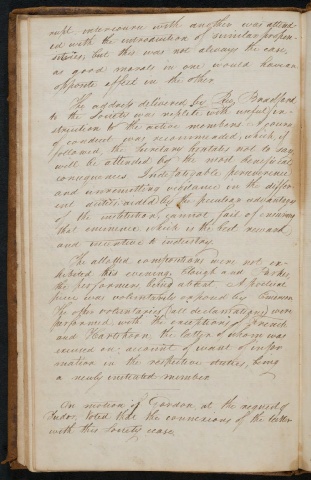 rupt intercourse with another was attend-
ed with the introduction of similar propen-
sities; but this was not always the case,
as good morals in one would have an
opposite effect in the other.
The address delivered by Pres. Bradford
to the Society was replete with useful in-
struction to the active members. A course
of conduct was recommended, which, if
followed, the Secretary hesitates not to say
will be attended by the most beneficial
consequences. Indefatigable perseverance
and unremitting vigilance in the differ-
ent duties, aided by the peculiar advantages
of the institution, cannot fail of ensuring
that eminence which is the best reward
and incentive to industry.
The allotted compositions were not ex-
hibited this evening, Clough and
the performers being absent. A poetical
piece was voluntarily exposed by
The other voluntaries (all declamations) were
performed with the exceptions of French
and Hawthorn, the latter of whom was
excused on account of want of infor-
mation in the respective duties, being
a newly initiated member.
On motion of Gordon at the request of
voted that the connexions of the latter
with this Society cease.